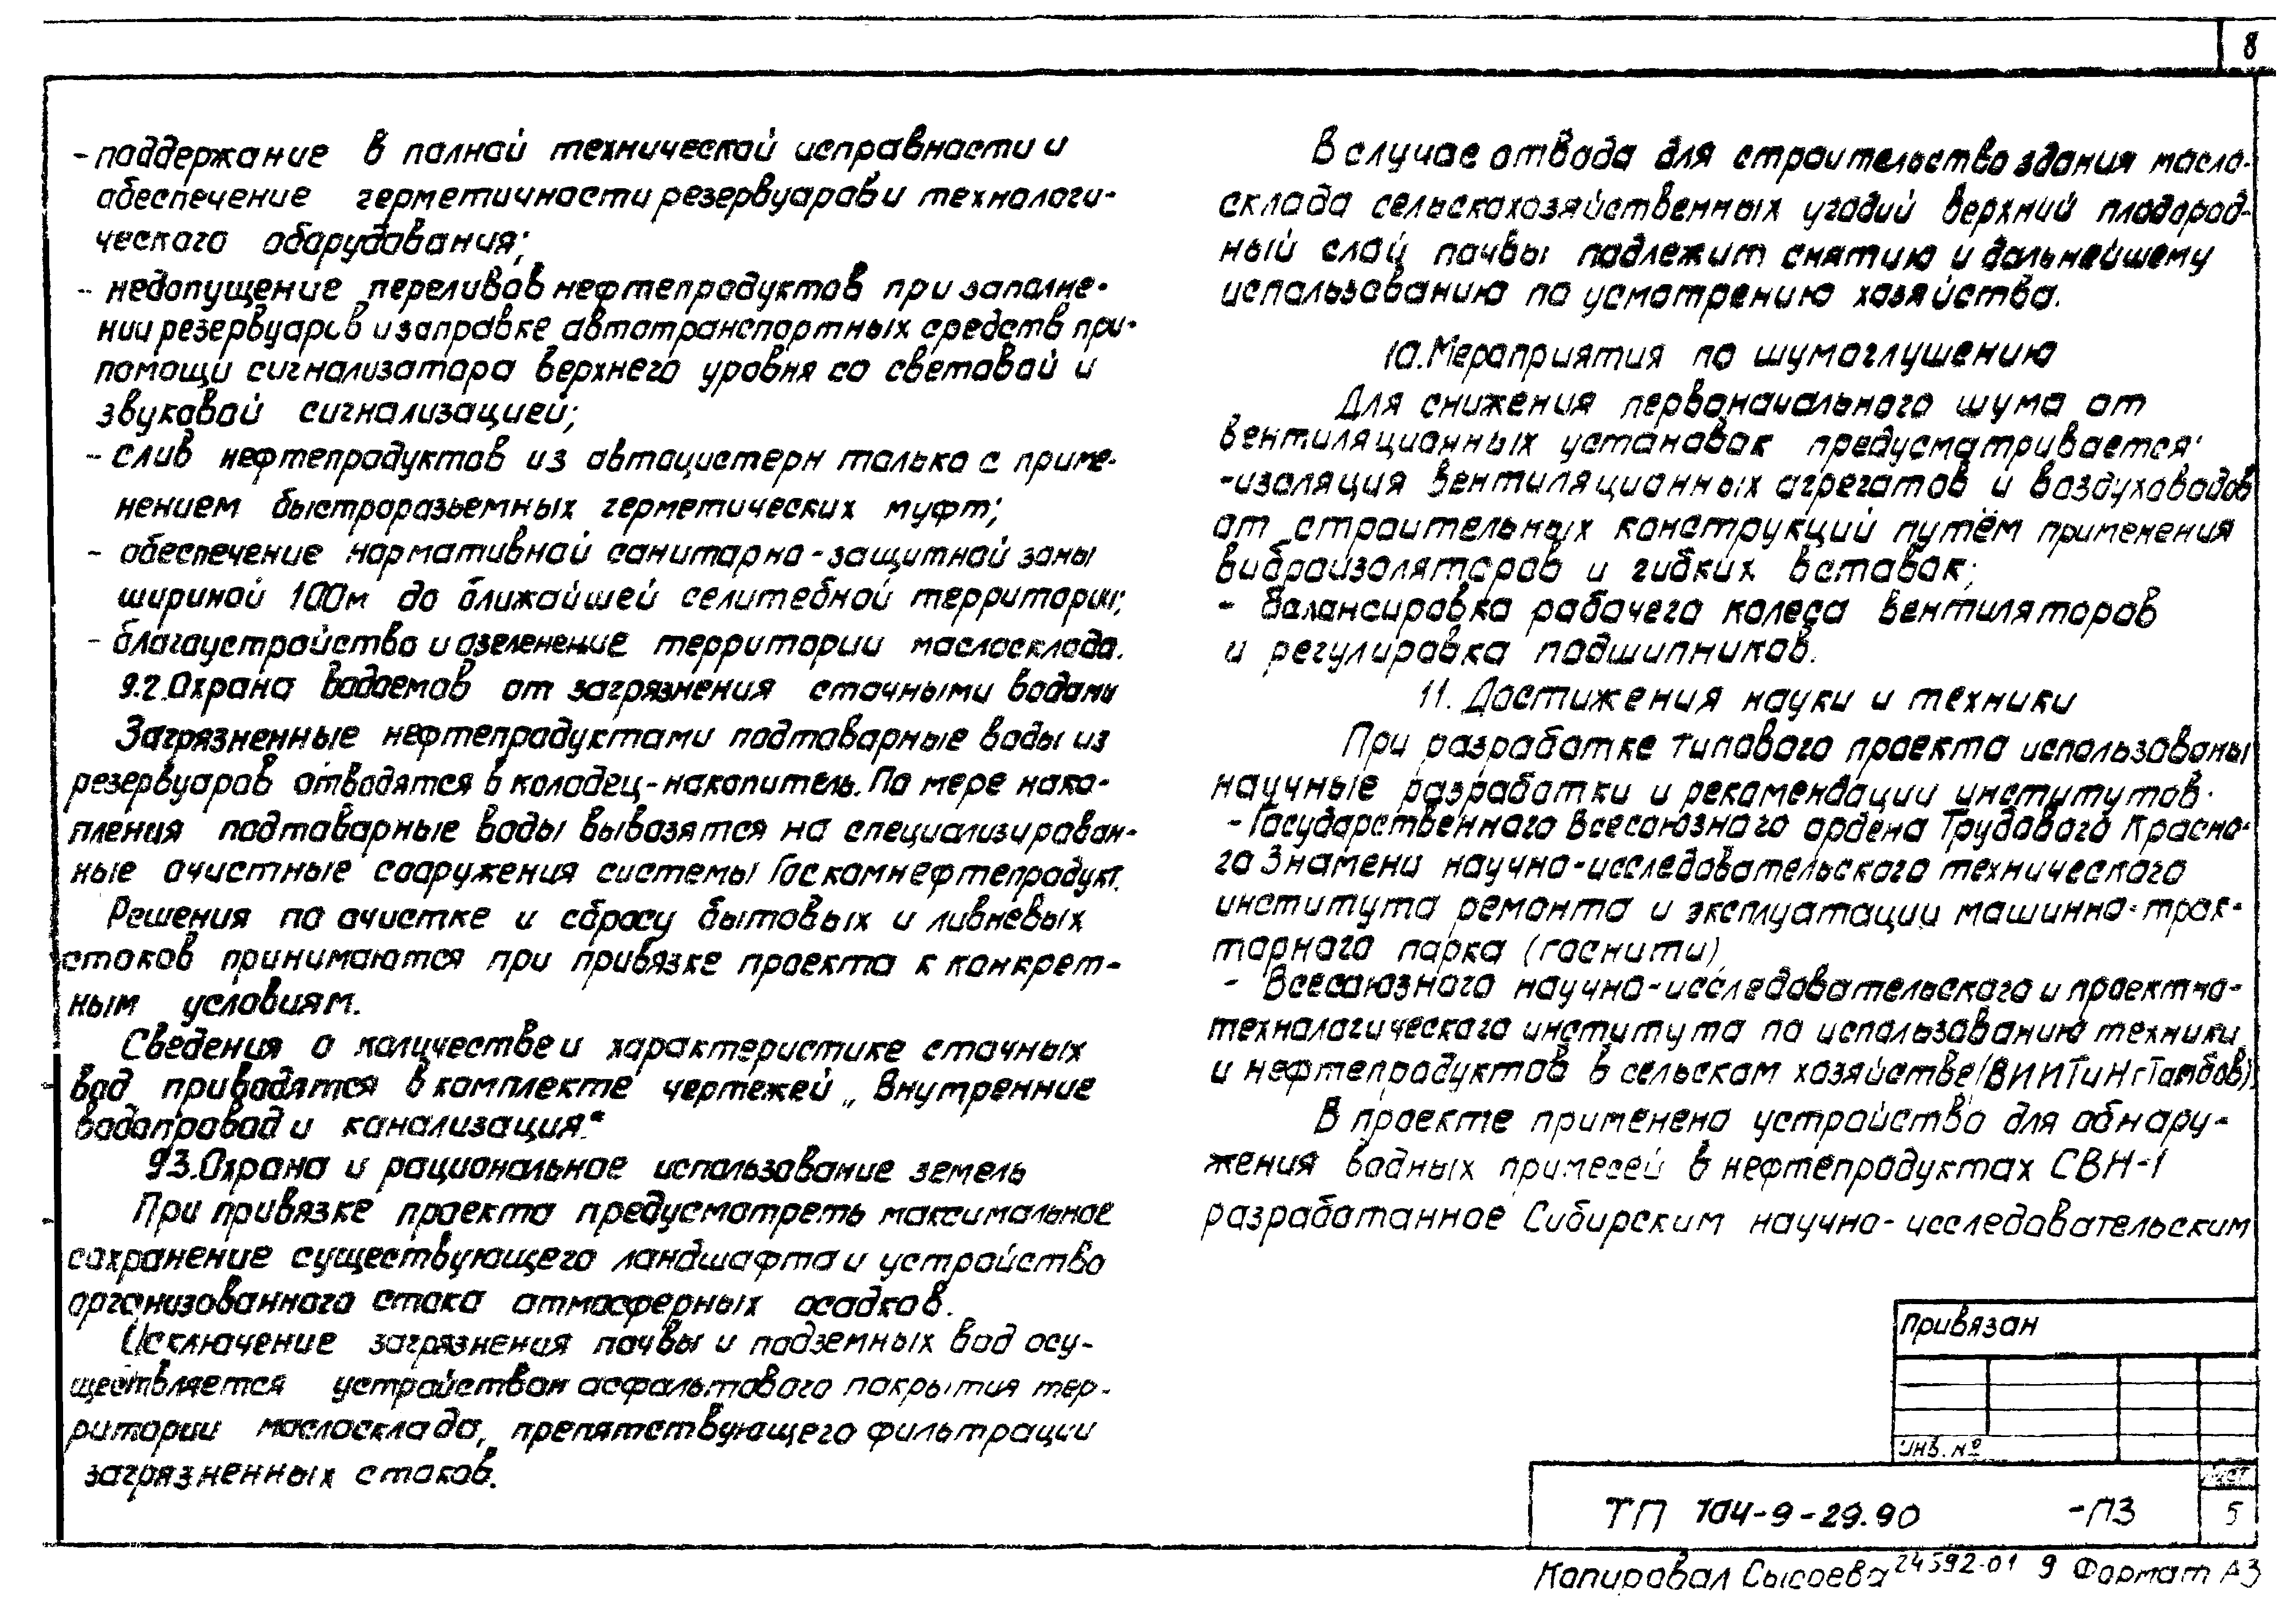 8
- поддержание в полной технической исправности и
обеспечение герметичности резервуаров и технологи-
ческого оборудования;
- недопущение переливов нефтепродуктов при заполне-
нии резервуаров и заправке автотранспортных средств при-
помощи сигнализатора верхнего уровня со световой и
звуковой сигнализацией;
- слив нефтепродуктов из автоцистерн только с приме-
нением быстроразьемных герметических муфт;
- обеспечение нормативной санитарно-защитной зоны
шириной 100м до ближайшей селитебной территории;
- благоустройство и озеленение территории маслосклада.
9.2.Охрана водоемов от загрязнения сточными водами
Загрязненные нефтепродуктами подтоварные воды из
резервуаров отводятся в колодец-накопитель. По мере нако-
пления подтоварные воды вывозятся на специализирован-
ные очистные сооружения системы Госкомнефтепродукт.
Решения по очистке и сбросу бытовых и ливневых
стоков принимаются при привязке проекта к конкрет-
ным условиям.
Сведения о количестве и характеристике сточных
вод приводятся в комплекте чертежей „Внутренние
водопровод и канализация."
9.3.Охрана и рациональное использование земель
При привязке проекта предусмотреть максимальное
сохранение существующего ландшафта и устройство
организованного стока атмосферных осадков.
Исключение загрязнения почвы и подземных вод осу-
ществляется устройством асфальтового покрытия тер-
ритории маслосклада, препятствующего фильтрации
загрязненных стоков.
В случае отвода для строительства здания масло-
склада сельскохозяйственных угодий верхний плодород-
ный слой почвы подлежит снятию и дальнейшему
использованию по усмотрению хозяйства.
10.Мероприятия по шумоглушению
Для снижения первоначального шума от
вентиляционных установок предусматривается:
-изоляция вентиляционных агрегатов и воздуховодов
от строительных конструкций путём применения
виброизоляторов и гибких вставок;
- балансировка рабочего колеса вентиляторов
и регулировка подшипников.
11. Достижения науки и техники
При разработке типового проекта использованы
научные разработки и рекомендации институтов:
- Государственного Всесоюзного ордена Трудового Красно-
го Знамени научно-исследовательского технического
института ремонта и эксплуатации машинно-трак-
торного парка (госнити),
- Всесоюзного научно-исследовательского и проектно-
технологического института по использованию техники
и нефтепродуктов в сельском хозяйстве (ВИИТиН г Тамбов).
В проекте применено устройство для обнару-
жения водных примесей в нефтепродуктах СВН-1
разработанное Сибирским научно-исследовательским
Привязан
Инв. №
ТП 704-9-29.90 -ПЗ
Лист
5
Копировал Сысоева 24592-01 9 Формат А3